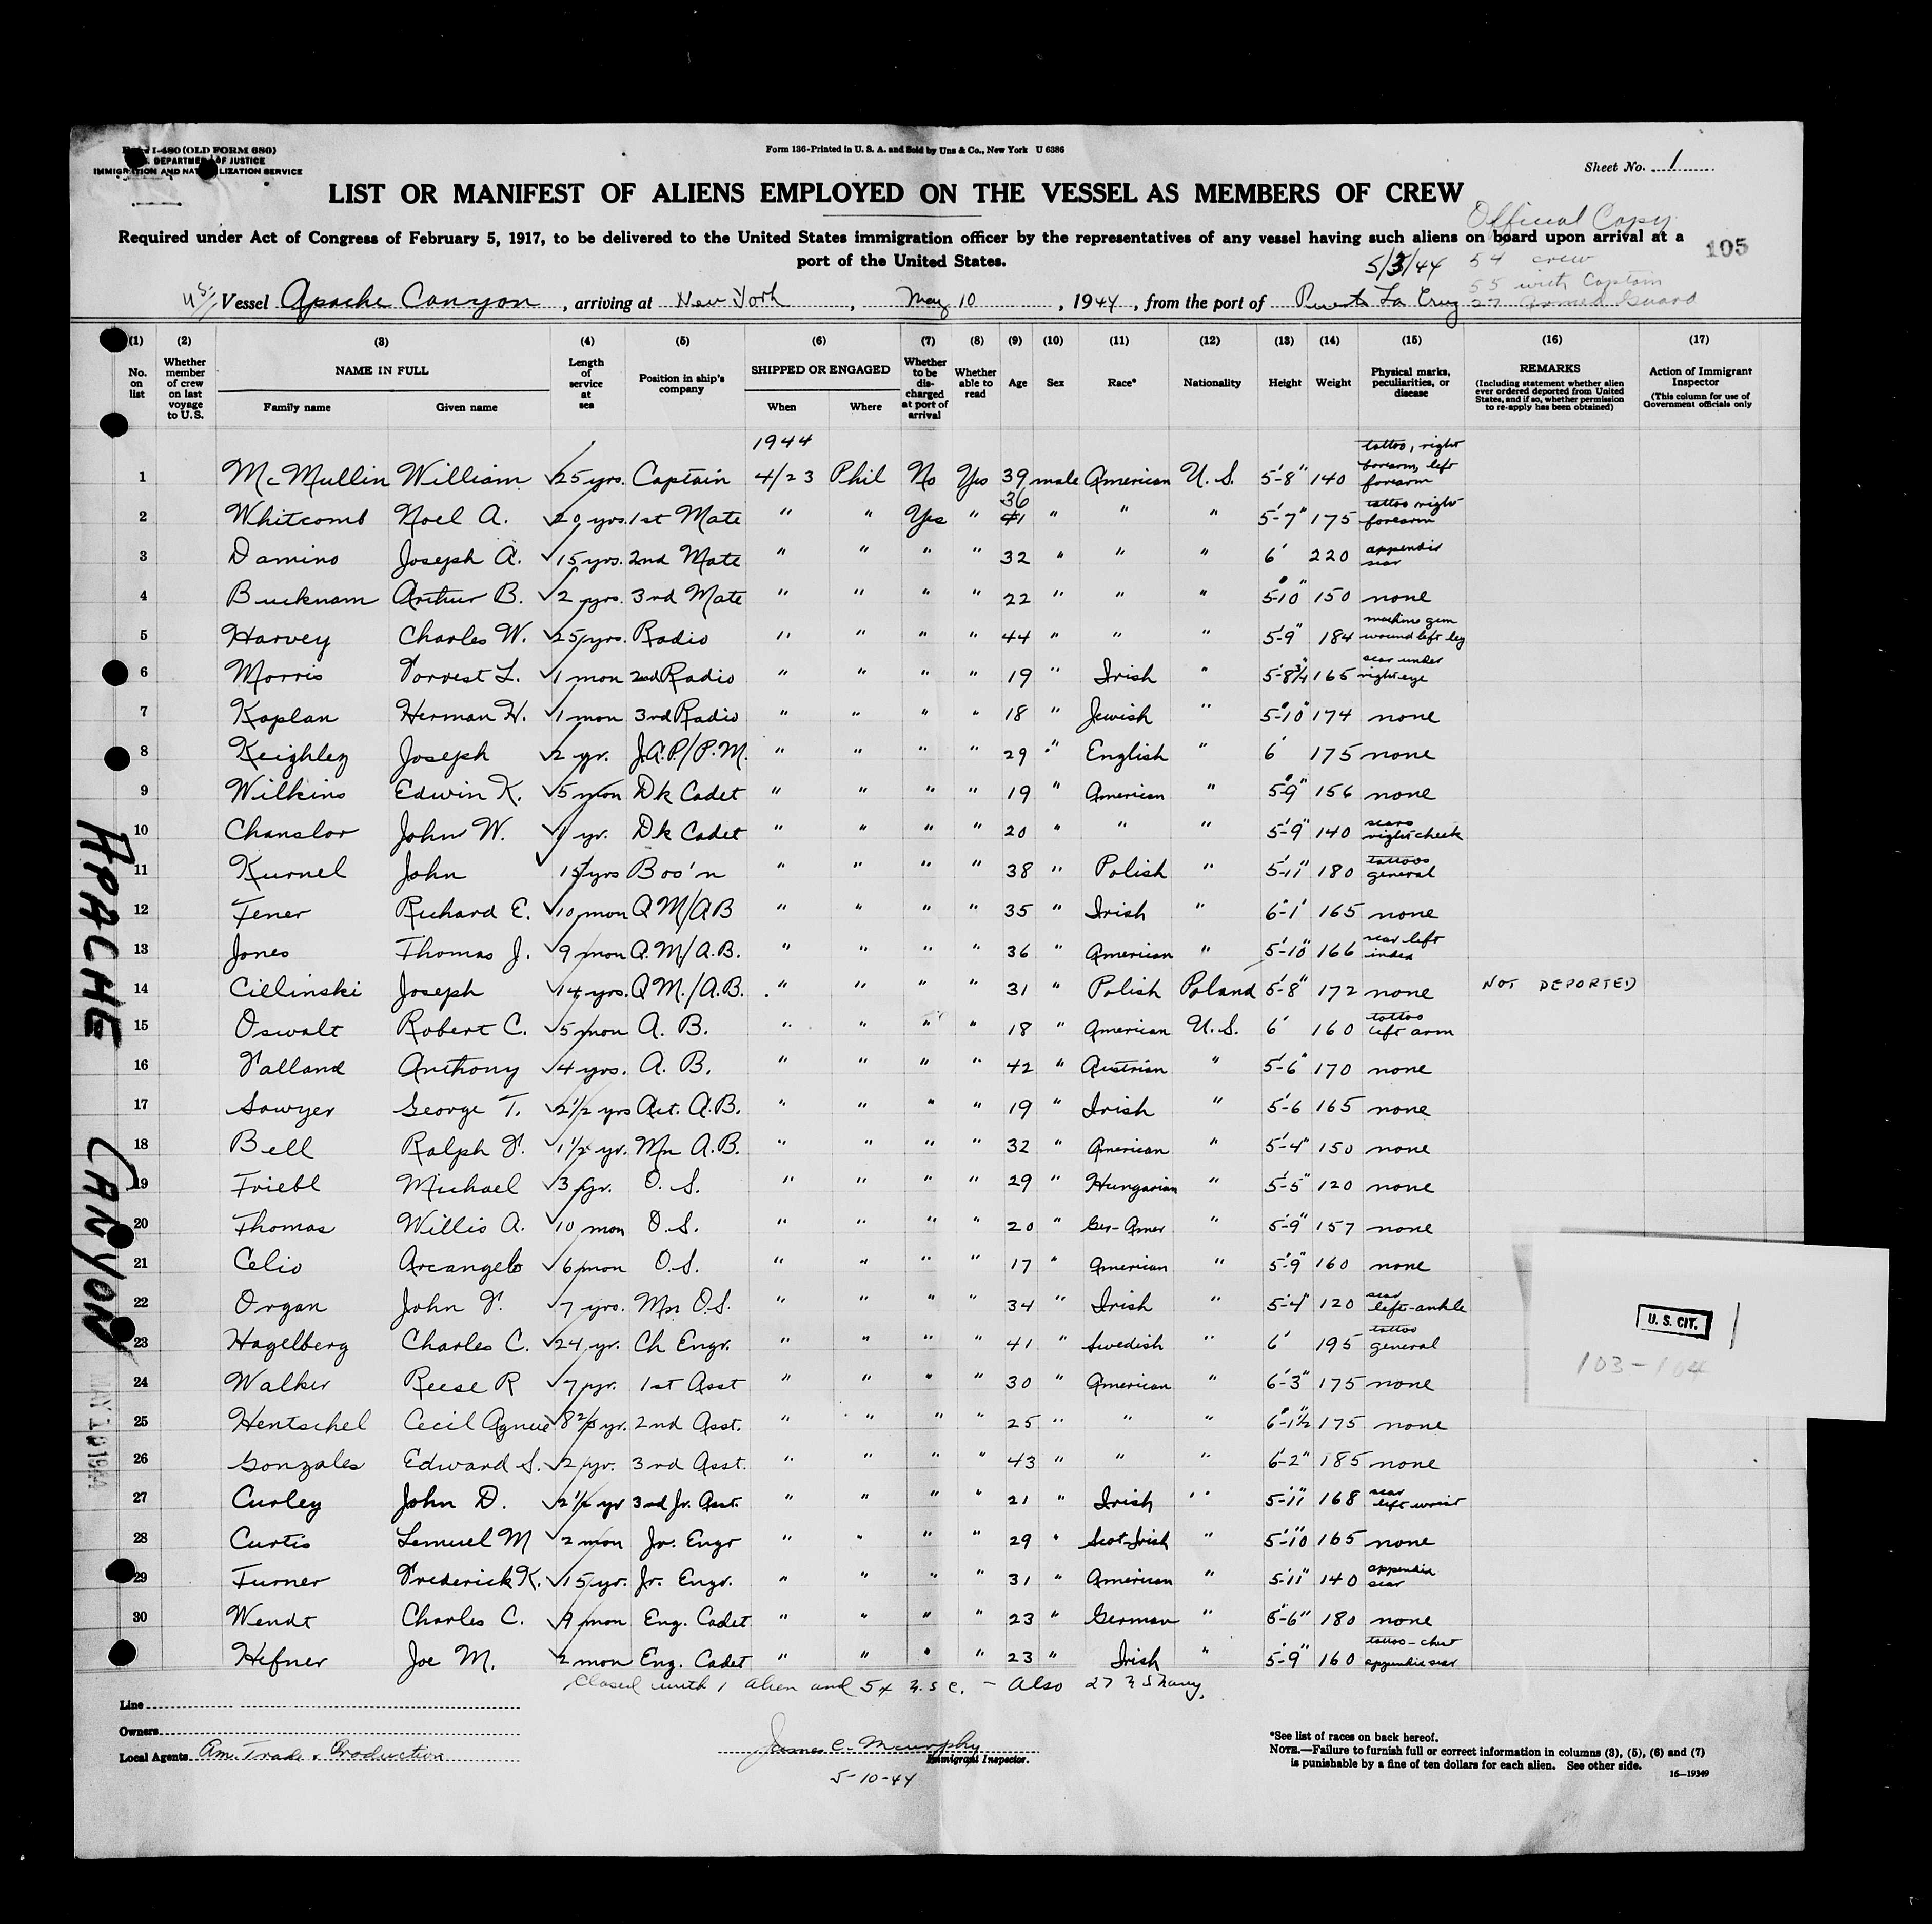 Form I-480 (OLD FORM 680)
U. S. DEPARTMENT OF JUSTICE
IMMIGRATION AND NATURALIZATION SERVICE
Form 136-Printed in U. S. A. and Sold by Unz & Co., New York U 6386
Sheet No. 1
LIST OR MANIFEST OF ALIENS EMPLOYED ON THE VESSEL AS MEMBERS OF CREW
Official Copy
Required under Act of Congress of February 5, 1917, to be delivered to the United States immigration officer by the representatives of any vessel having such aliens on board upon arrival at a
port of the United States.
105
5/3/44 54 crew
55 with Captain
27 Armed Guard
U.S. Vessel Apache Canyon, arriving at New York, May 10, 1944, from the port of Puerto La Cruz
(1) (2) (3) (4) (5) (6) (7) (8) (9) (10) (11) (12) (13) (14) (15) (16) (17)
No. on list
Whether member of crew on last voyage to U.S.
NAME IN FULL
Family name Given name
Length of service at sea
Position in ship's company
SHIPPED OR ENGAGED
When Where
Whether to be discharged at port of arrival
Whether able to read
Age
Sex
Race*
Nationality
Height
Weight
Physical marks, peculiarities, or disease
REMARKS
(Including statement whether alien ever ordered deported from United States, and if so, whether permission to re-apply has been obtained)
Action of Immigrant Inspector
(This column for use of Government officials only
1944
1 McMullin William 25 yrs. Captain 4/23 Phil No Yes 39 male American U. S. 5'-8" 140 tattoo, right forearm, left forearm
2 Whitcomb Noel A. 20 yrs. 1st Mate " " Yes " 36 41 " " " 5'-7" 175 tattoo right forearm
3 Damino Joseph A. 15 yrs. 2nd Mate " " " " 32 " " " 6' 220 appendix scar
4 Bucknam Arthur B. 2 yrs. 3rd Mate " " " " 22 " " " 5'-10" 150 none
5 Harvey Charles W. 25 yrs. Radio " " " " 44 " " " 5'-9" 184 machine gun wound left leg
6 Morris Forrest L. 1 mon 2nd Radio " " " " 19 " Irish " 5'-8 3/4" 165 scar under right eye
7 Kaplan Herman H. 1 mon 3rd Radio " " " " 18 " Jewish " 5'-10" 174 none
8 Keighley Joseph 2 yr. J.A.P./P.M. " " " " 29 " English " 6' 175 none
9 Wilkins Edwin K. 5 mon Dk Cadet " " " " 19 " American " 5'-9" 156 none
10 Chanslor John W. 1 yr. Dk Cadet " " " " 20 " " " 5'-9" 140 scars right cheek
11 Kurnel John 15 yrs Bos'n " " " " 38 " Polish " 5'-11" 180 tattoos general
12 Fener Richard E. 10 mon Q M/AB " " " " 35 " Irish " 6'-1" 165 none
13 Jones Thomas J. 9 mon Q.M./A.B. " " " " 36 " American " 5'-10" 166 scar left index
14 Cillinski Joseph 14 yrs. QM./A.B. " " " " 31 " Polish Poland 5'-8" 172 none NOT DEPORTED
15 Oswalt Robert C. 5 mon A. B. " " " " 18 " American U. S. 6' 160 tattoo left arm
16 Falland Anthony 4 yrs. A. B. " " " " 42 " Austrian " 5'-6" 170 none
17 Sawyer George T. 2 1/2 yrs Act. A.B. " " " " 19 " Irish " 5'-6 165 none
18 Bell Ralph F. 1 1/2 yr. Mn A.B. " " " " 32 " American " 5'-4" 150 none
19 Friebl Michael 3 yr. O. S. " " " " 29 " Hungarian " 5'-5" 120 none
20 Thomas Willis A. 10 mon O.S. " " " " 20 " Ger-Amer " 5'-9" 157 none
21 Celio Arcangelo 6 mon O.S. " " " " 17 " American " 5'-9" 160 none
22 Organ John F. 7 yrs. Mn O.S. " " " " 34 " Irish " 5'-4" 120 scar left-ankle
23 Hagelberg Charles C. 24 yr. Ch Engr. " " " " 41 " Swedish " 6' 195 tattoo general
24 Walker Reese R 7 yr. 1st Asst " " " " 30 " American " 6'-3" 175 none
25 Hentschel Cecil Agnue yr. 2nd Asst. " " " " 25 " " " 6'-1 1/2" 175 none
26 Gonzales Edward S. 2 yr. 3rd Asst. " " " " 43 " " " 6'-2" 185 none
27 Curley John D. 2 1/2 yr 3rd Jr. Asst. " " " " 21 " Irish " 5'-11" 168 scar left wrist
28 Curtis Lemuel M 2 mon Jr. Engr " " " " 29 " Scot-Irish " 5'-10" 165 none
29 Turner Frederick K. 15 yr. Jr. Engr. " " " " 31 " American " 5'-11" 140 appendix scar
30 Wendt Charles C. 9 mon Eng. Cadet " " " " 23 " German " 5'-6" 180 none
Hefner Joe M. 2 mon Eng. Cadet " " " " 23 " Irish " 5'-9" 160 tattoo - chest appendix scar
Closed with 1 alien and 54 U.S.C. - Also 27 U S Navy.
Line
Owners
Local Agents Am. Trade & Production
James C. Murphy
Immigrant Inspector.
5-10-44
*See list of races on back hereof.
NOTE.—Failure to furnish full or correct information in columns (3), (5), (6) and (7)
is punishable by a fine of ten dollars for each alien. See other side.
16—19349
APACHE CANYON
MAY 10 1944
U. S. CIT.
103-104